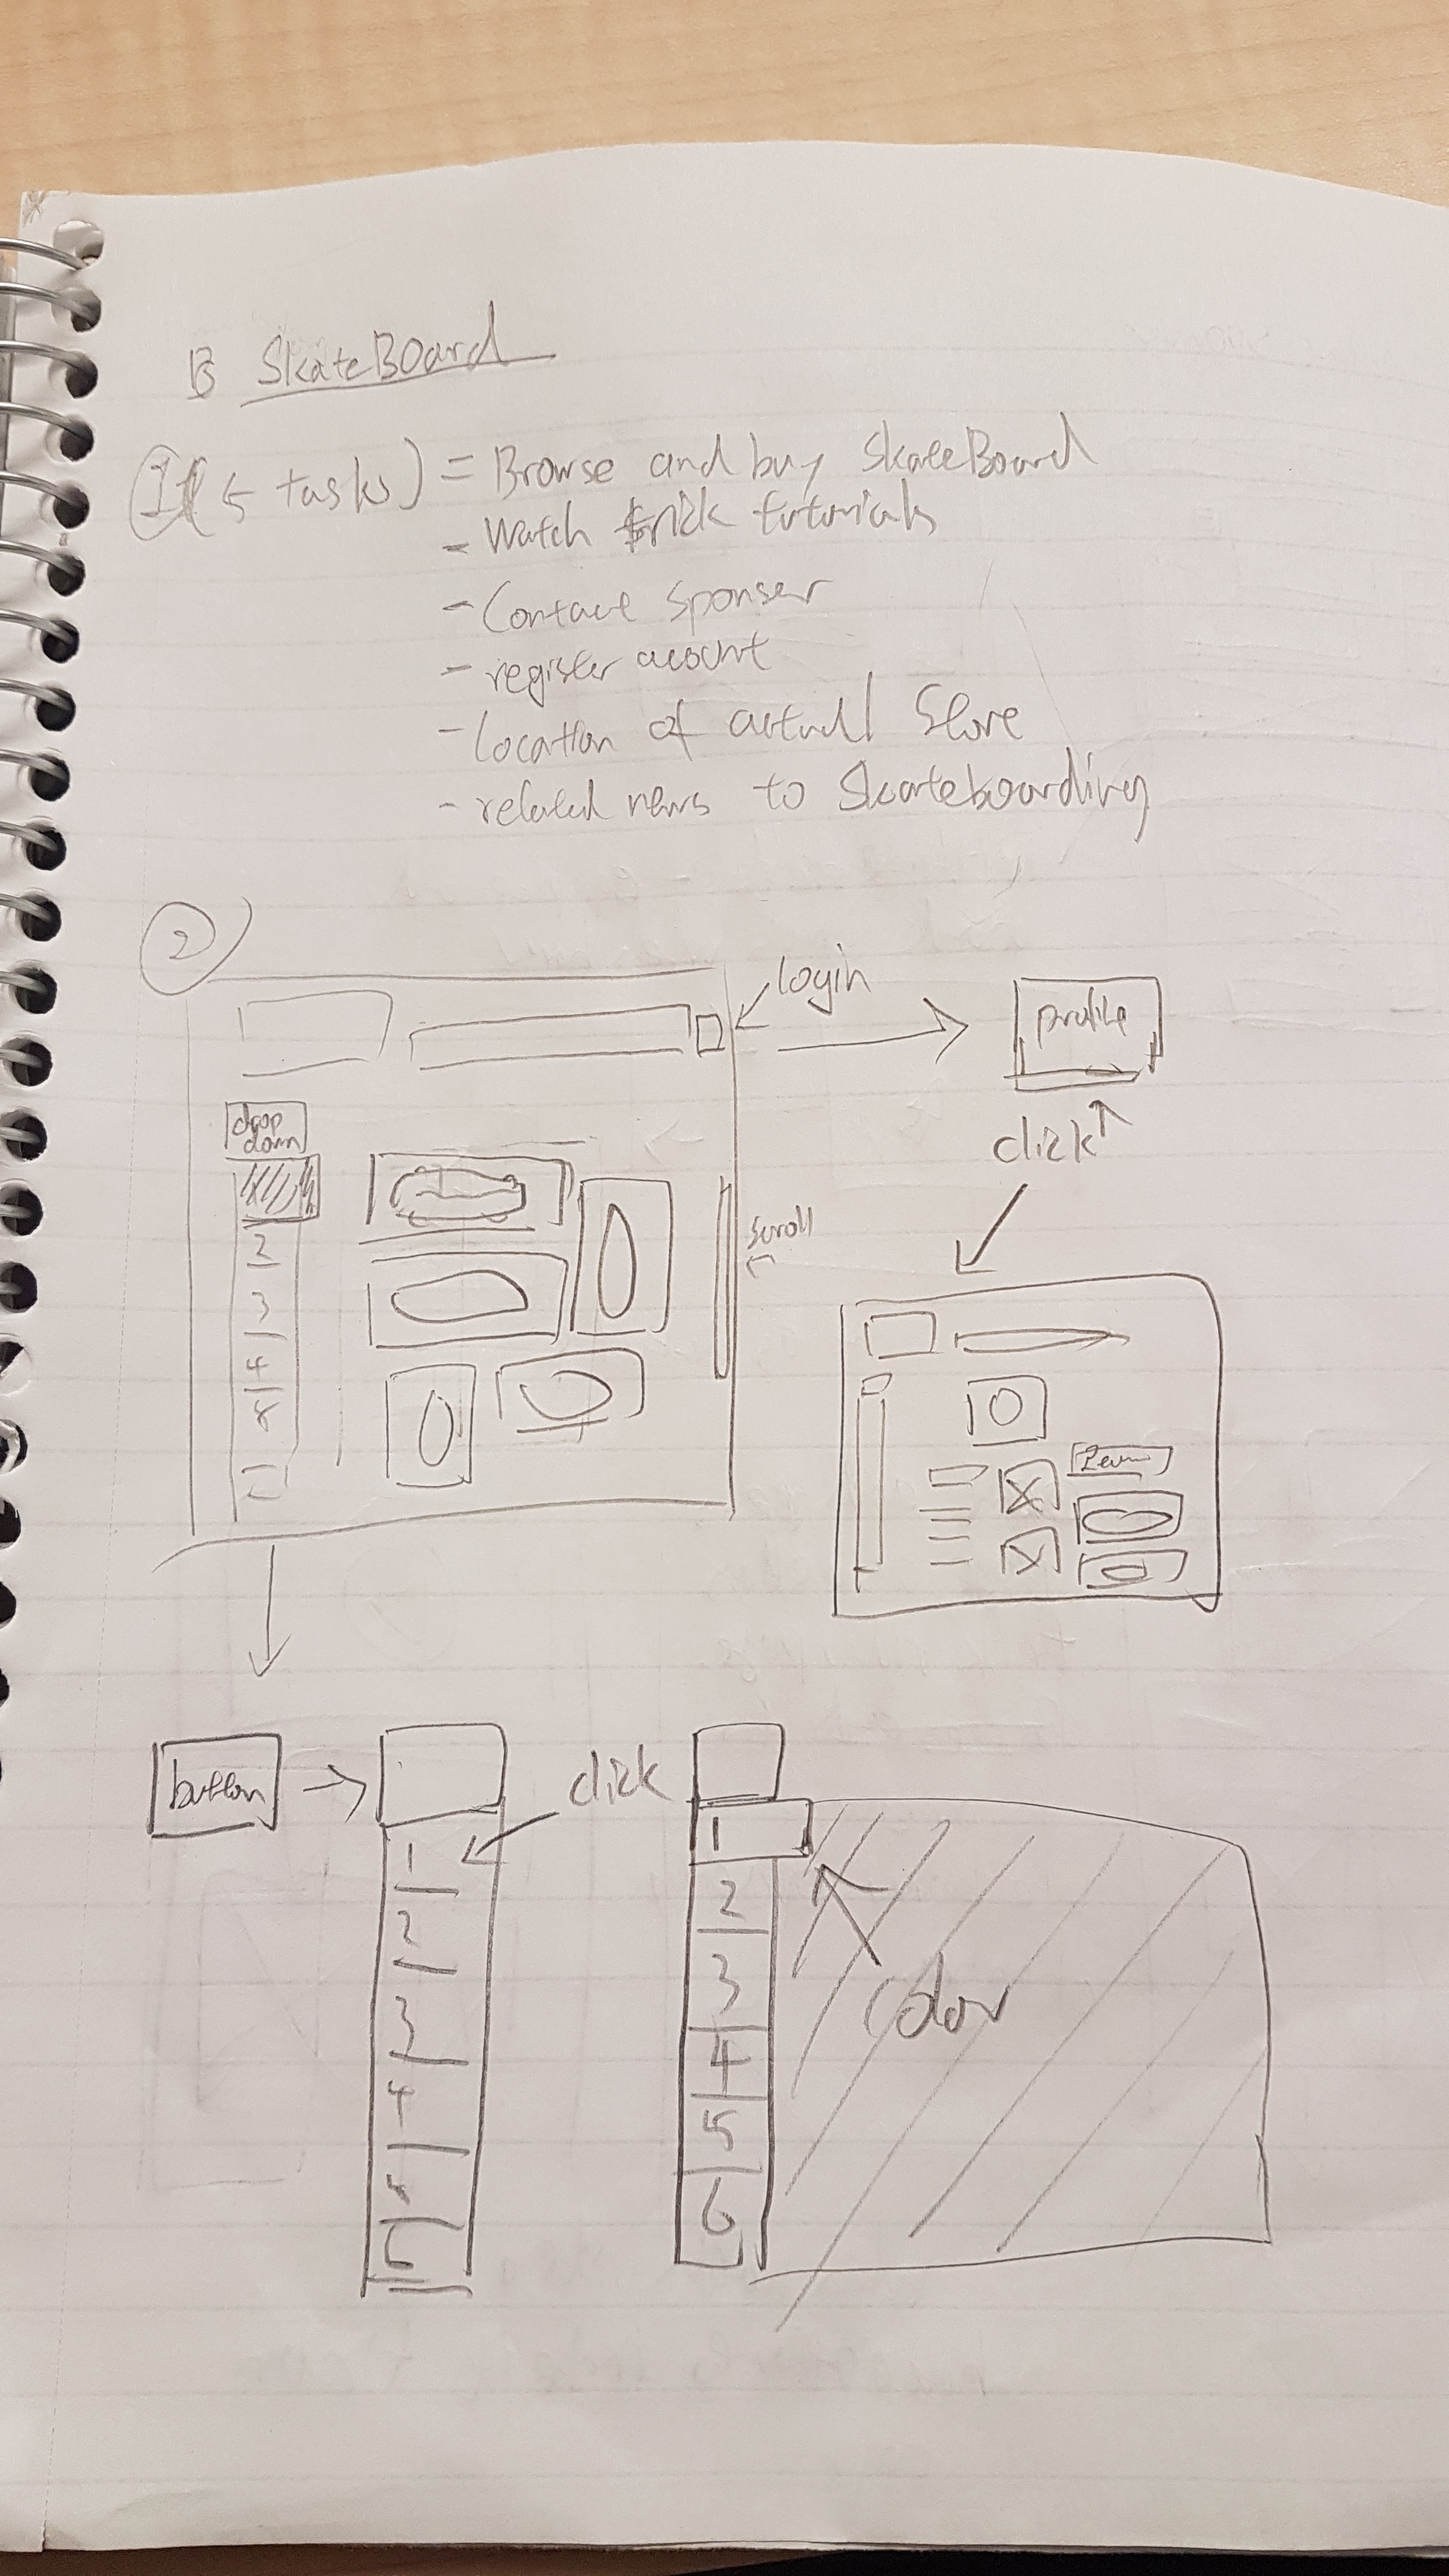 B SkateBoard
(5 tasks) = Browse and buy SkateBoard
- Watch trick tutorials
- Contact Sponser
- register acount
- Location of actuall Store
- related news to Skateboarding
2
login
profile
click
drop
down
scroll
2
3
4
5
button
click
1
2
3
4
5
6
1
2
3
4
5
6
color